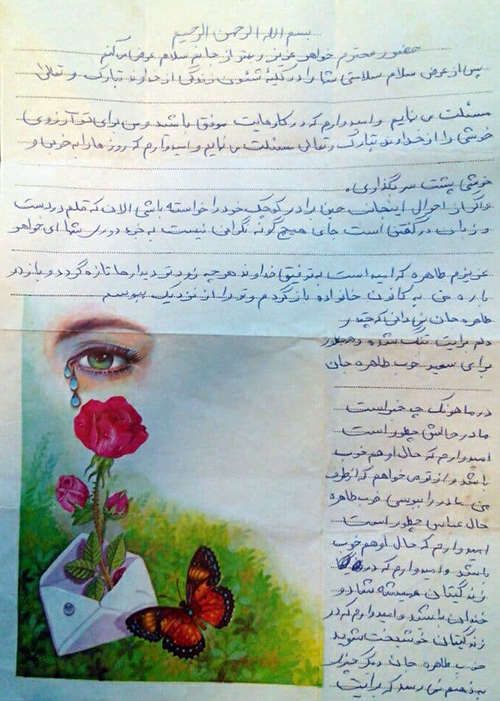 بسم الله الرحمن الرحیم
حضور محترم خواهر عزیز و بهتر از جانم سلام عرض می کنم
پس از عرض سلام سلامتی شما را در کلیهٔ شئون زندگی از خداوند تبارک و تعالی
مسئلت می نمایم و امیدوارم که در کارهایت موفق باشید و من برای تو آرزوی
خوشی را از خداوند تبارک و تعالی مسئلت می نمایم و امیدوارم که روزها را به خوبی و
خوشی پشت سر بگذاری.
و اگر از احوال اینجانب حقیر برادر کوچک خود را خواسته باشی الان که قلم در دست
و زبان در گفتن است جای هیچ گونه نگرانی نیست به جزء دوری شما ای خواهر
عزیزم طاهره که امید است به توفیق خداوند هر چه زودتر دیدارها تازه گردد و باز دو
باره من به کانون خانواده باز گردم و تو را از نزدیک ببوسم
طاهره جان نمی دانی که چقدر
دلم برایت تنگ شده و همینطور
برای سعید خوب طاهره جان
در ماهونک چه خبر است
مادر حالش چطور است
امیدوارم که حال او هم خوب
باشد و از تو می خواهم که از طرف
من مادر را ببوسی خوب طاهره
حال عباس چطور است
امیدوارم که حال او هم خوب
باشد و امیدوارم که در
زندگیتان همیشه شاد و
خندان باشید و امیدوارم که در
زندگیتان خوشبخت شوید
خوب طاهره جان دیگر چیزی
به ذهنم نمی رسد که برایت